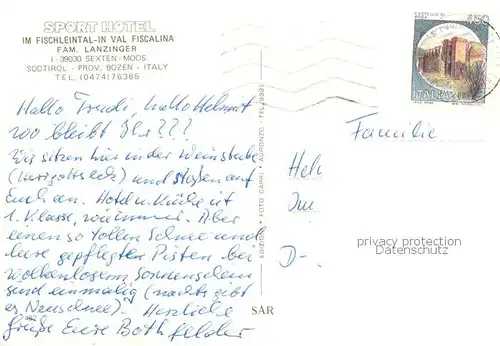 SPORT HOTEL
IM FISCHLEINTAL-IN VAL FISCALINA
FAM. LANZINGER
I-39030 SEXTEN-MOOS
SÜDTIROL - PROV. BOZEN - ITALY
TEL. (0474) 76365
450
ITALIA
Hallo Trudi, hallo Helmut
wo bleibt Ihr???
Wir sitzen hier in der Weinstube
und stoßen auf
Euch an. Hotel u. Küche ist
1. Klasse, wie immer. Aber
einen so tollen Schnee und
leere gepflegten Pisten bei
wolkenlosem Sonnenschein
sind einmalig (nachts gibt
es Neuschnee). Herzliche
Grüße Eure Bothfelder
EDIZIONE - FOTO GAPRI - AURONZO - TEL.
Familie
Hel
Im
D-
privacy protection
Datenschutz
SAR